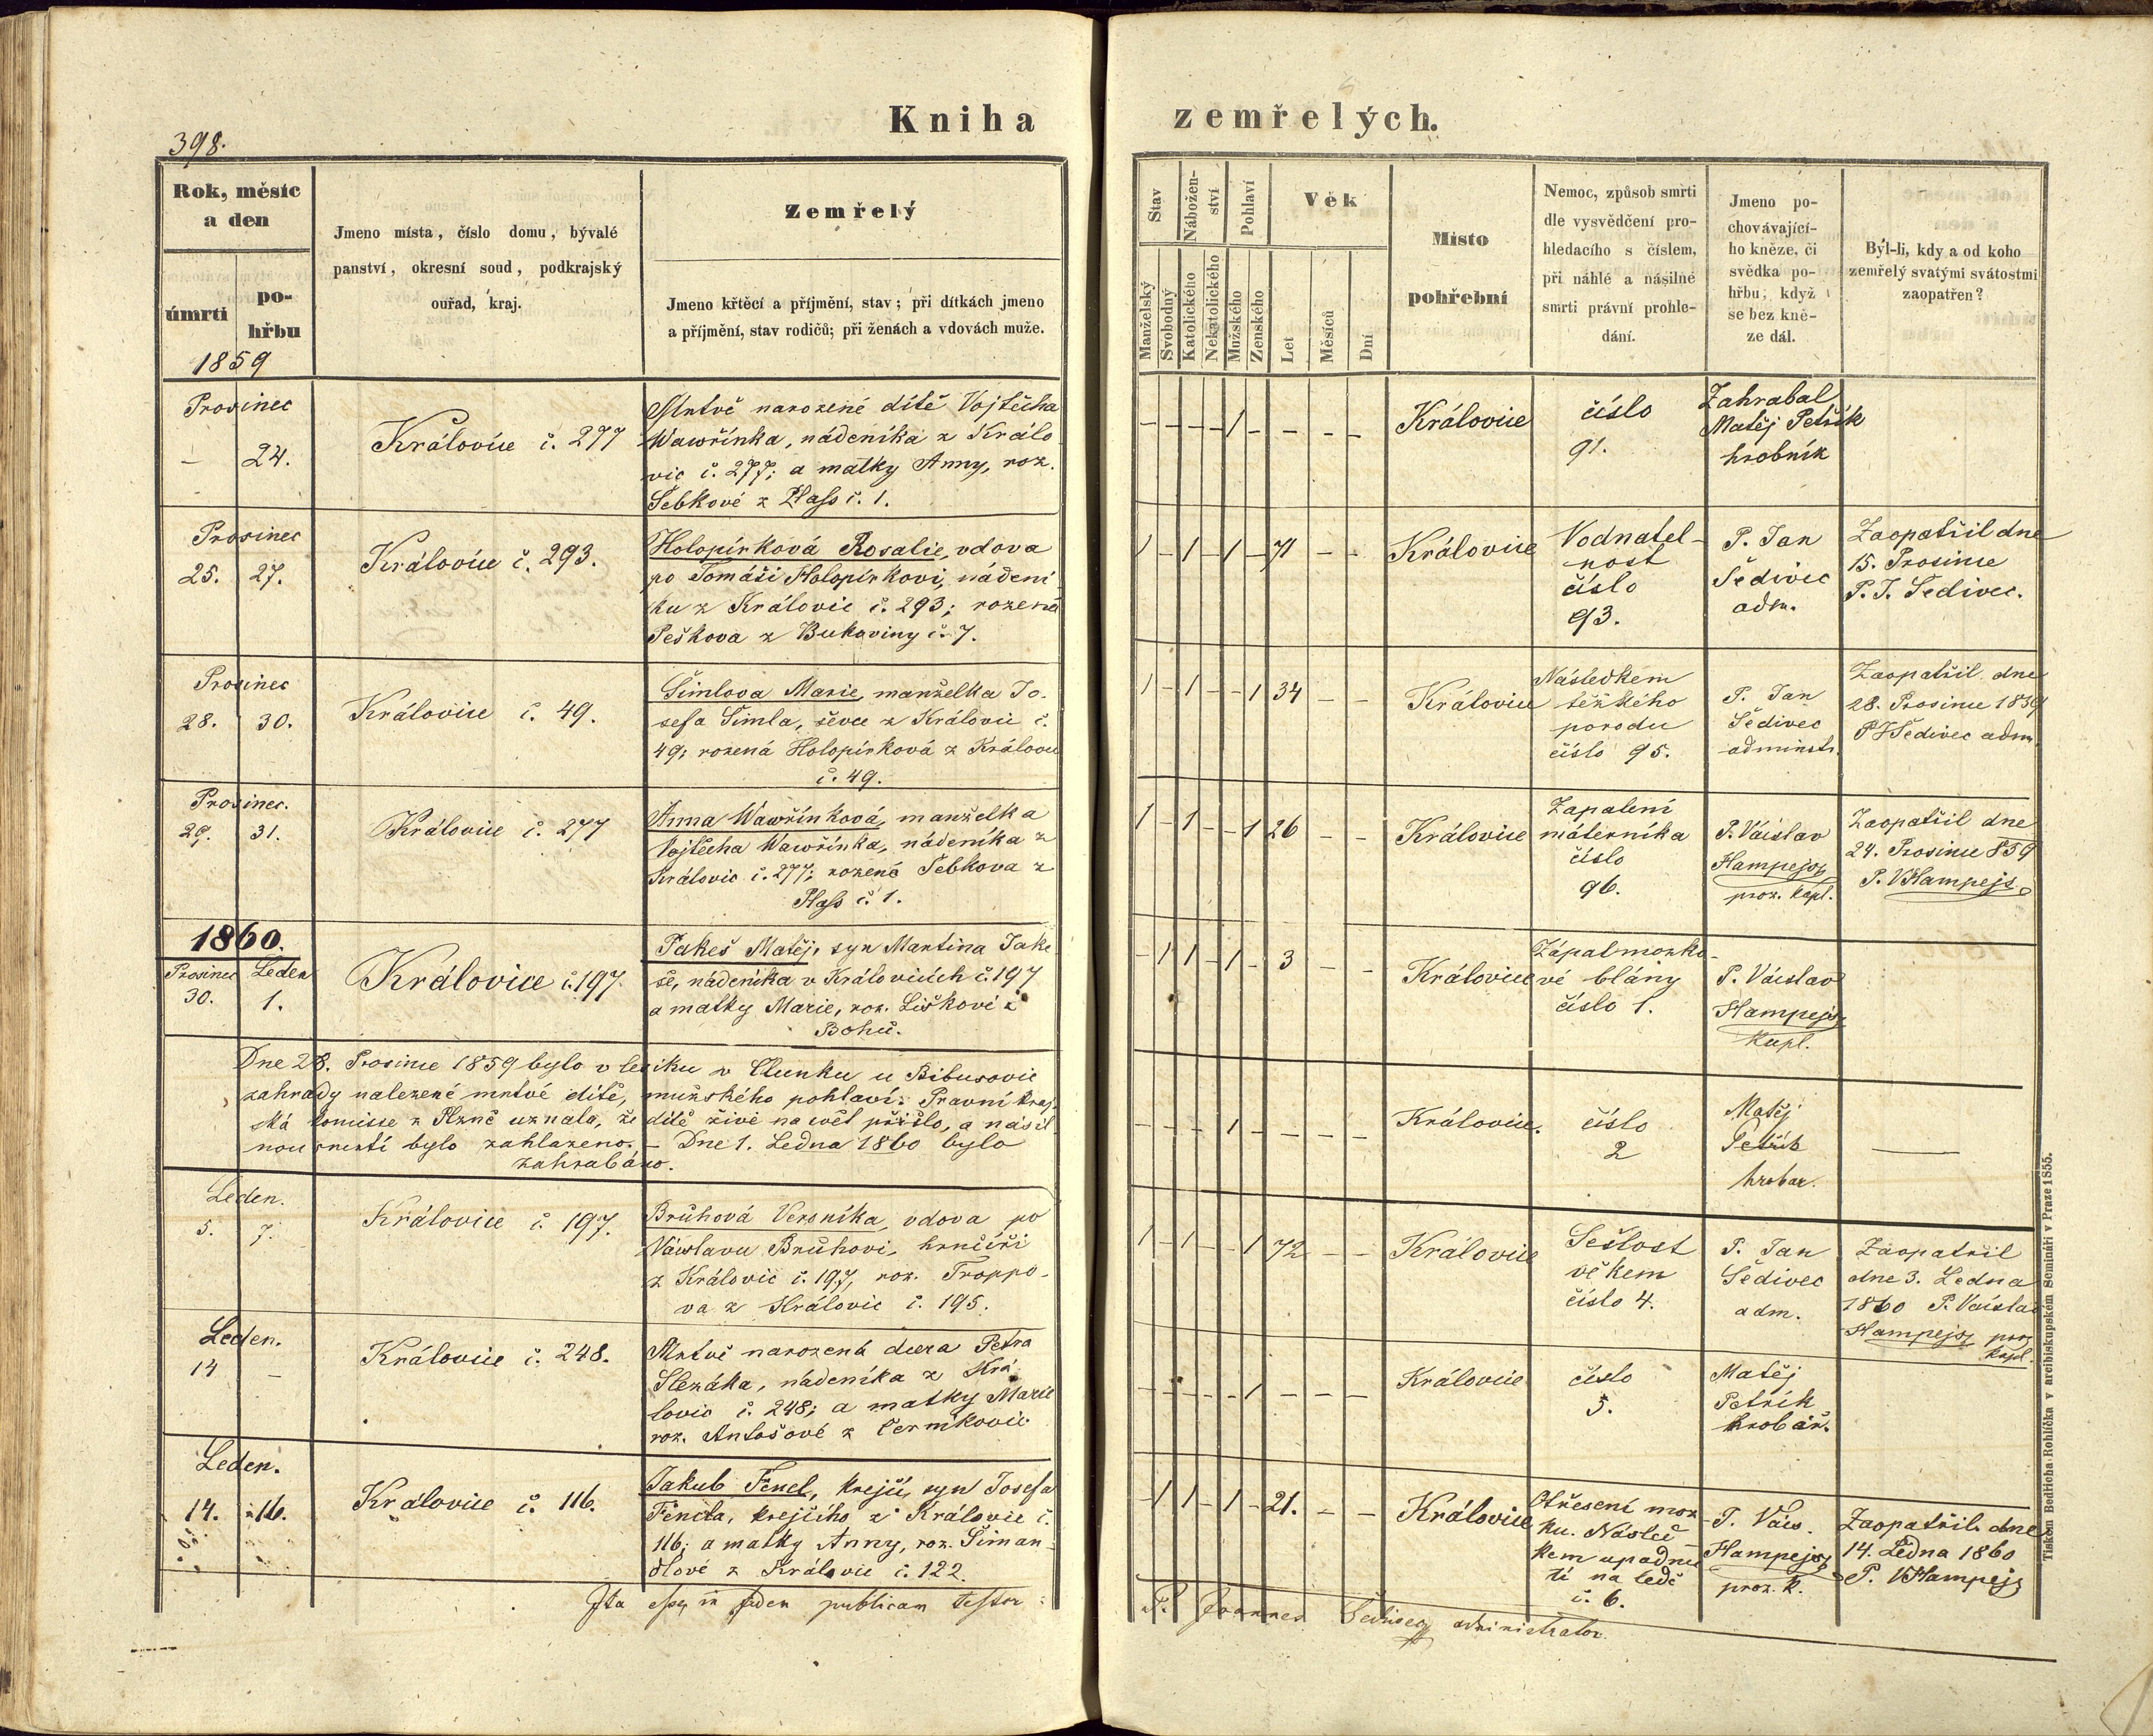 398.
Kniha zemřelých.
Rok, měsíc
a den
úmrtí
po-
hřbu
1859
Jmeno místa, číslo domu, bývalé
panství, okresní soud, podkrajský
ouřad, kraj.
Zemřelý
Jmeno křtěcí a příjmění, stav; při dítkách jmeno
a příjmění, stav rodičů; při ženách a vdovách muže.
Stav
Manželský
Svobodný
Nábožen-
ství
Katolického
Nekatolického
Pohlaví
Mužského
Ženského
Věk
Let
Měsíců
Dní
Místo
pohřební
Nemoc, způsob smrti
dle vysvědčení pro-
hledacího s číslem,
při náhlé a násilné
smrti právní prohle-
dání.
Jmeno po-
chovávající-
ho kněze, či
svědka po-
hřbu, když
se bez kně-
ze dál.
Byl-li, kdy a od koho
zemřelý svatými svátostmi
zaopatřen?
Prosinec
– 24.
Královice č. 277
Mrtvě narozené dítě Vojtěcha
Wawřínka, nádeníka z Králo
vic č. 277; a matky Anny, roz.
Šebkové z Plass č. 1.
– – – – 1 – – – –
Královice
číslo
91.
Zahrabal
Matěj Petřík
hrobník
Prosinec
25. 27.
Královice č. 293.
Holopírková Rosalie, vdova
po Tomáši Holopírkovi, nádení
ku z Královic č. 293; rozená
Peškova z Bukoviny č. 7.
1 – 1 – 1 – 71 – –
Královice
Vodnatel-
nost
číslo
93.
P. Jan
Šedivec
adm.
Zaopatřil dne
15. Prosince
P. J. Šedivec.
Prosinec
28. 30.
Královice č. 49.
Šimlova Marie, manželka Jo-
sefa Šimla, ševce z Královic č.
49; rozená Holopírková z Královic
č. 49.
1 – 1 – – 1 34 – –
Královice
Následkem
těžkého
porodu
číslo 95.
P. Jan
Šedivec
administr.
Zaopatřil dne
28. Prosince 1859
P J Šedivec adm.
Prosinec.
29. 31.
Královice č. 277
Anna Wawřínková, manželka
Vojtěcha Wawřínka, nádeníka z
Královic č. 277; rozené Šebkova z
Plass č. 1.
1 – 1 – – 1 26 – –
Královice
Zapalení
máterníka
číslo
96.
P. Váislav
Hampejs
proz. kapl.
Zaopatřil dne
24. Prosince 859
P. V Hampejs
1860.
Prosinec Leden
30. 1.
Královice č. 197.
Jakeš Matěj, syn Martina Jake
še, nádeníka v Královicích č. 197
a matky Marie, roz. Liškové z
Bohů.
– 1 1 – 1 – 3 – –
Královice
Zápal mozko-
vé blány
číslo 1.
P. Váislav
Hampejs
kapl.
Dne 28. Prosince 1859 bylo v
v Clunku u Bibusovic
zahrady nalezené mrtvé dítě, mužského pohlaví. Pravní kraj
ská komisse z Plzně uznala, že dítě živé na svět přišlo, a násil
nou smrtí bylo zahlazeno. – Dne 1. Ledna 1860 bylo
zahrabáno.
– – – – 1 – – – –
Královice.
číslo
2
Matěj
Petřík
hrobar.
Leden.
5. 7.
Královice č. 197.
Brůhová Veronika, vdova po
Váislavu Brůhovi, hrnčíři
z Královic č. 197, roz. Troppo-
va z Královic č. 195.
1 – 1 – – 1 72 – –
Královice
Sešlost
věkem
číslo 4.
P. Jan
Šedivec
adm.
Zaopatřil
dne 3. Ledna
1860 P. Váislav
Hampejs proz
kapl.
Leden.
14 –
Královice č. 248.
Mrtvě narozená dcera Petra
Slezáka, nádeníka z Krá
lovic č. 248; a matky Marie
roz. Antošové z Černíkovic
– – – – – 1 – – –
Královice
číslo
5.
Matěj
Petřík
hrobář.
Leden.
14. 16.
Kralovice č. 116.
Jakub Fencl, krejčí, syn Josefa
Fencla, krejčího z Královic č.
116; a matky Anny, roz. Šiman-
dlové z Královic č. 122.
– 1 1 – 1 – 21. – –
Královice
Otřesení moz
ku. Násled
kem upadnu
tí na ledě
č. 6.
P. Váis.
Hampejs
proz. k.
Zaopatřil dne
14. Ledna 1860
P. V Hampejs
Ita esse in fidem publicam testor:
P. Joannes Šedivec administrator.
Tiskem Bedřicha Rohlíčka v arcibiskupském Semináři v Praze 1855.